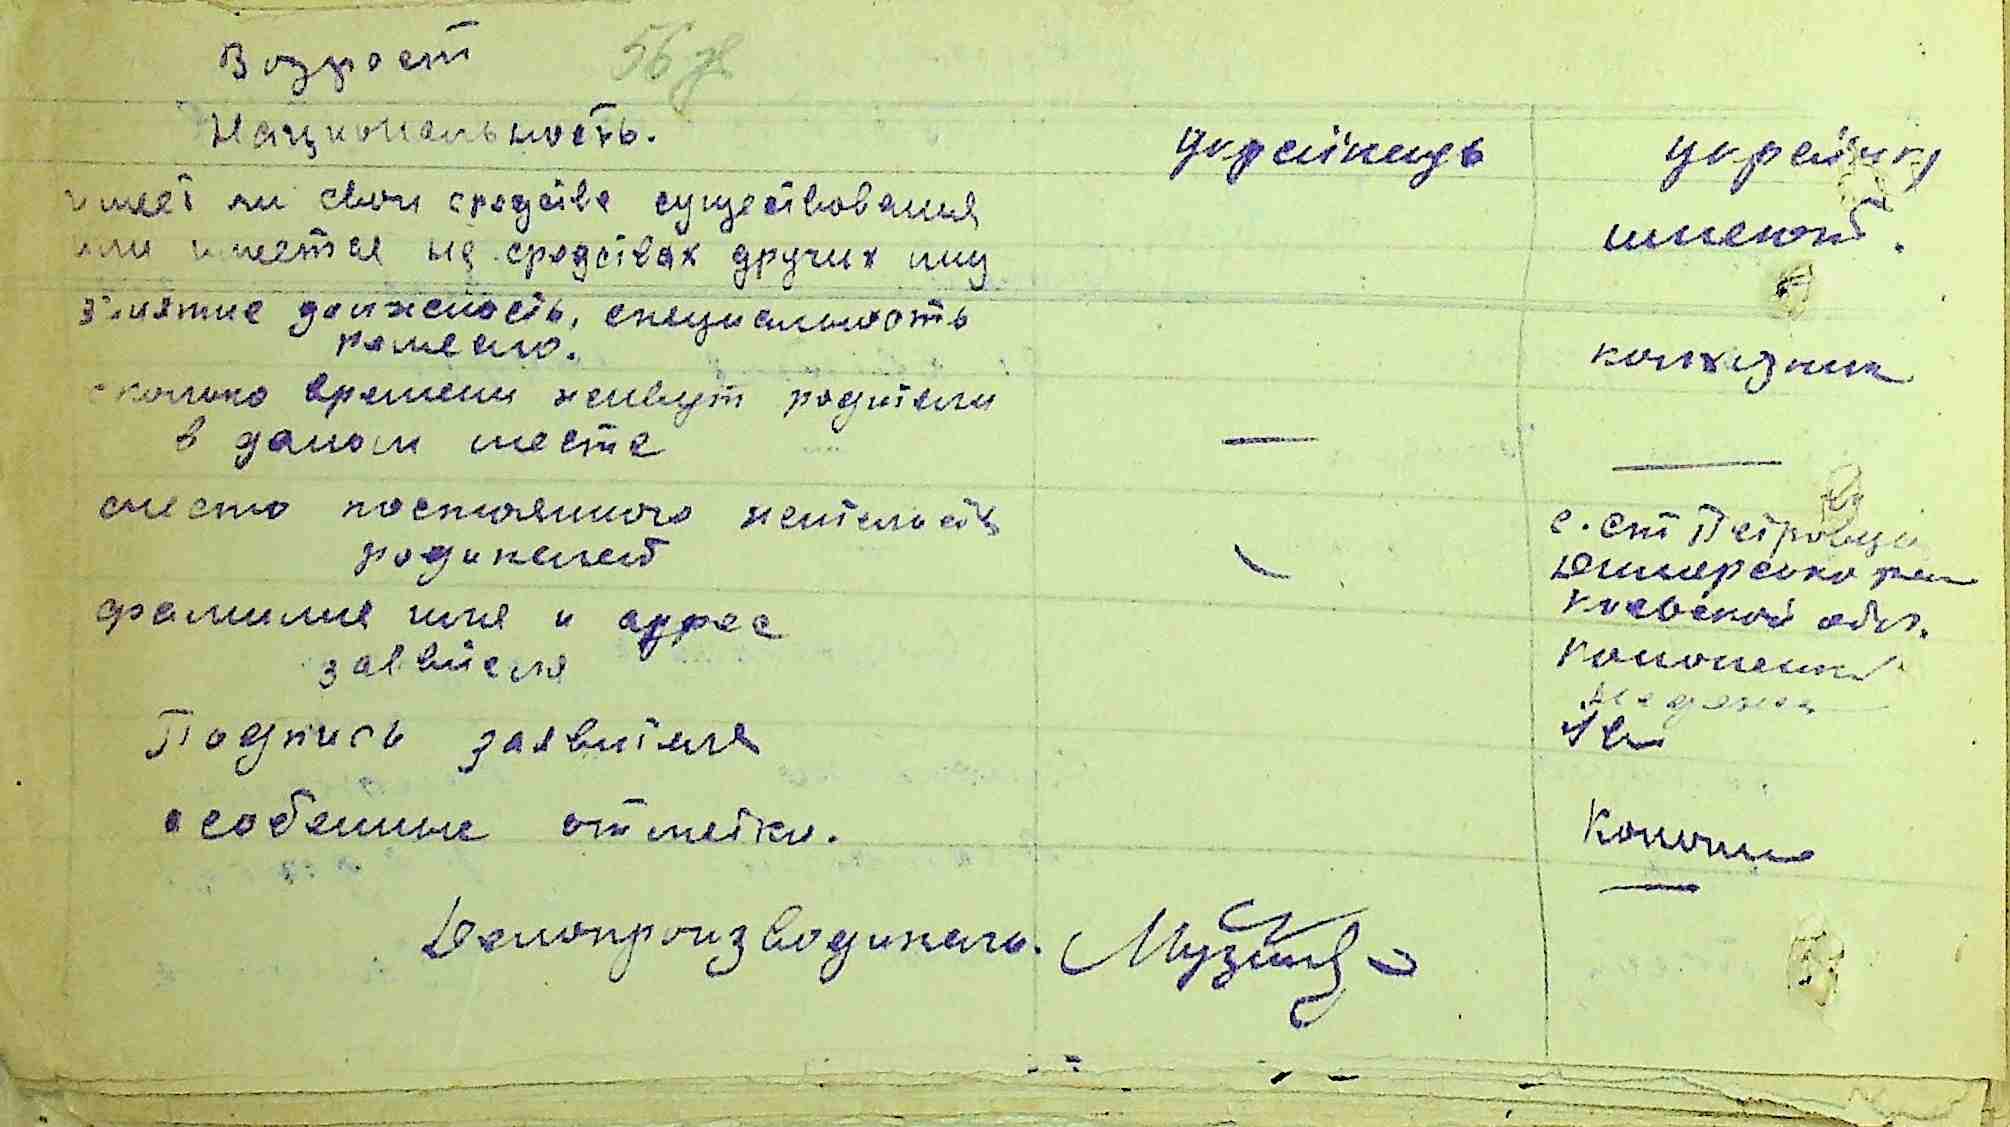 Возраст
Национальность. украинець украинк
имеет ли свои средства существования
или имеется на средствах других лиц имеют.
занятие должность, специальность
ремесло. колхозник
сколько времени живут родители
в даном месте — —
место постоянного жительств с. Ст Петровци
родителей Дымерсько рай
Киевской обл.
фамилия имя и адрес
заявителя
Подпись заявителя
особенные отметки.
Делопроизводитель.